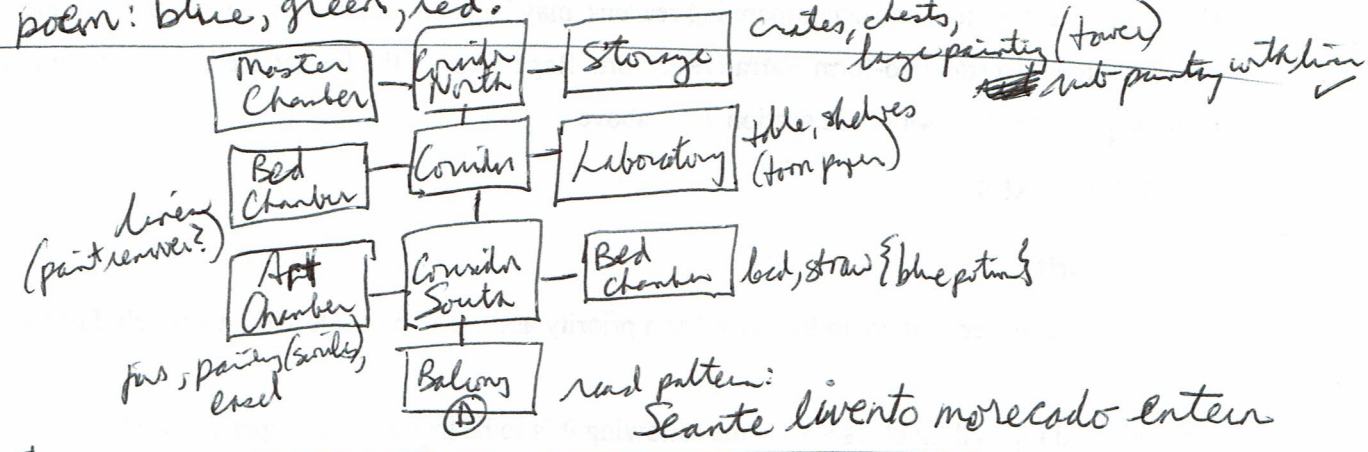 poem: blue, green, red.
Master Chamber
Corridor North
Storage
crates, chests,
large painting (tower)
rub painting with linen ✓
Bed Chamber
Corridor
Laboratory
table, shelves
(torn paper)
linen
(paint remover?)
Art Chamber
Corridor South
Bed Chamber
bed, straw {blue potion}
jars, painting (smiles),
easel
Balcony
D
read pattern:
Seante livento morecado entern